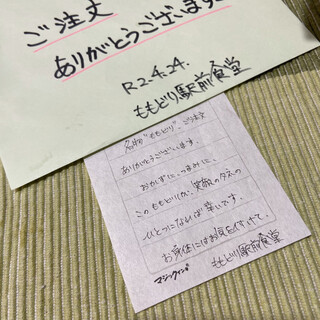 ご注文
ありがとうございます
R2.4.24.
ももどり駅前食堂
名物"ももどり"、ご注文
ありがとうございます。
おかずに、つまみに、
このももどりが、笑顔のタネの
ひとつになれば幸いです。
お身体にはお気を付けて。
ももどり駅前食堂